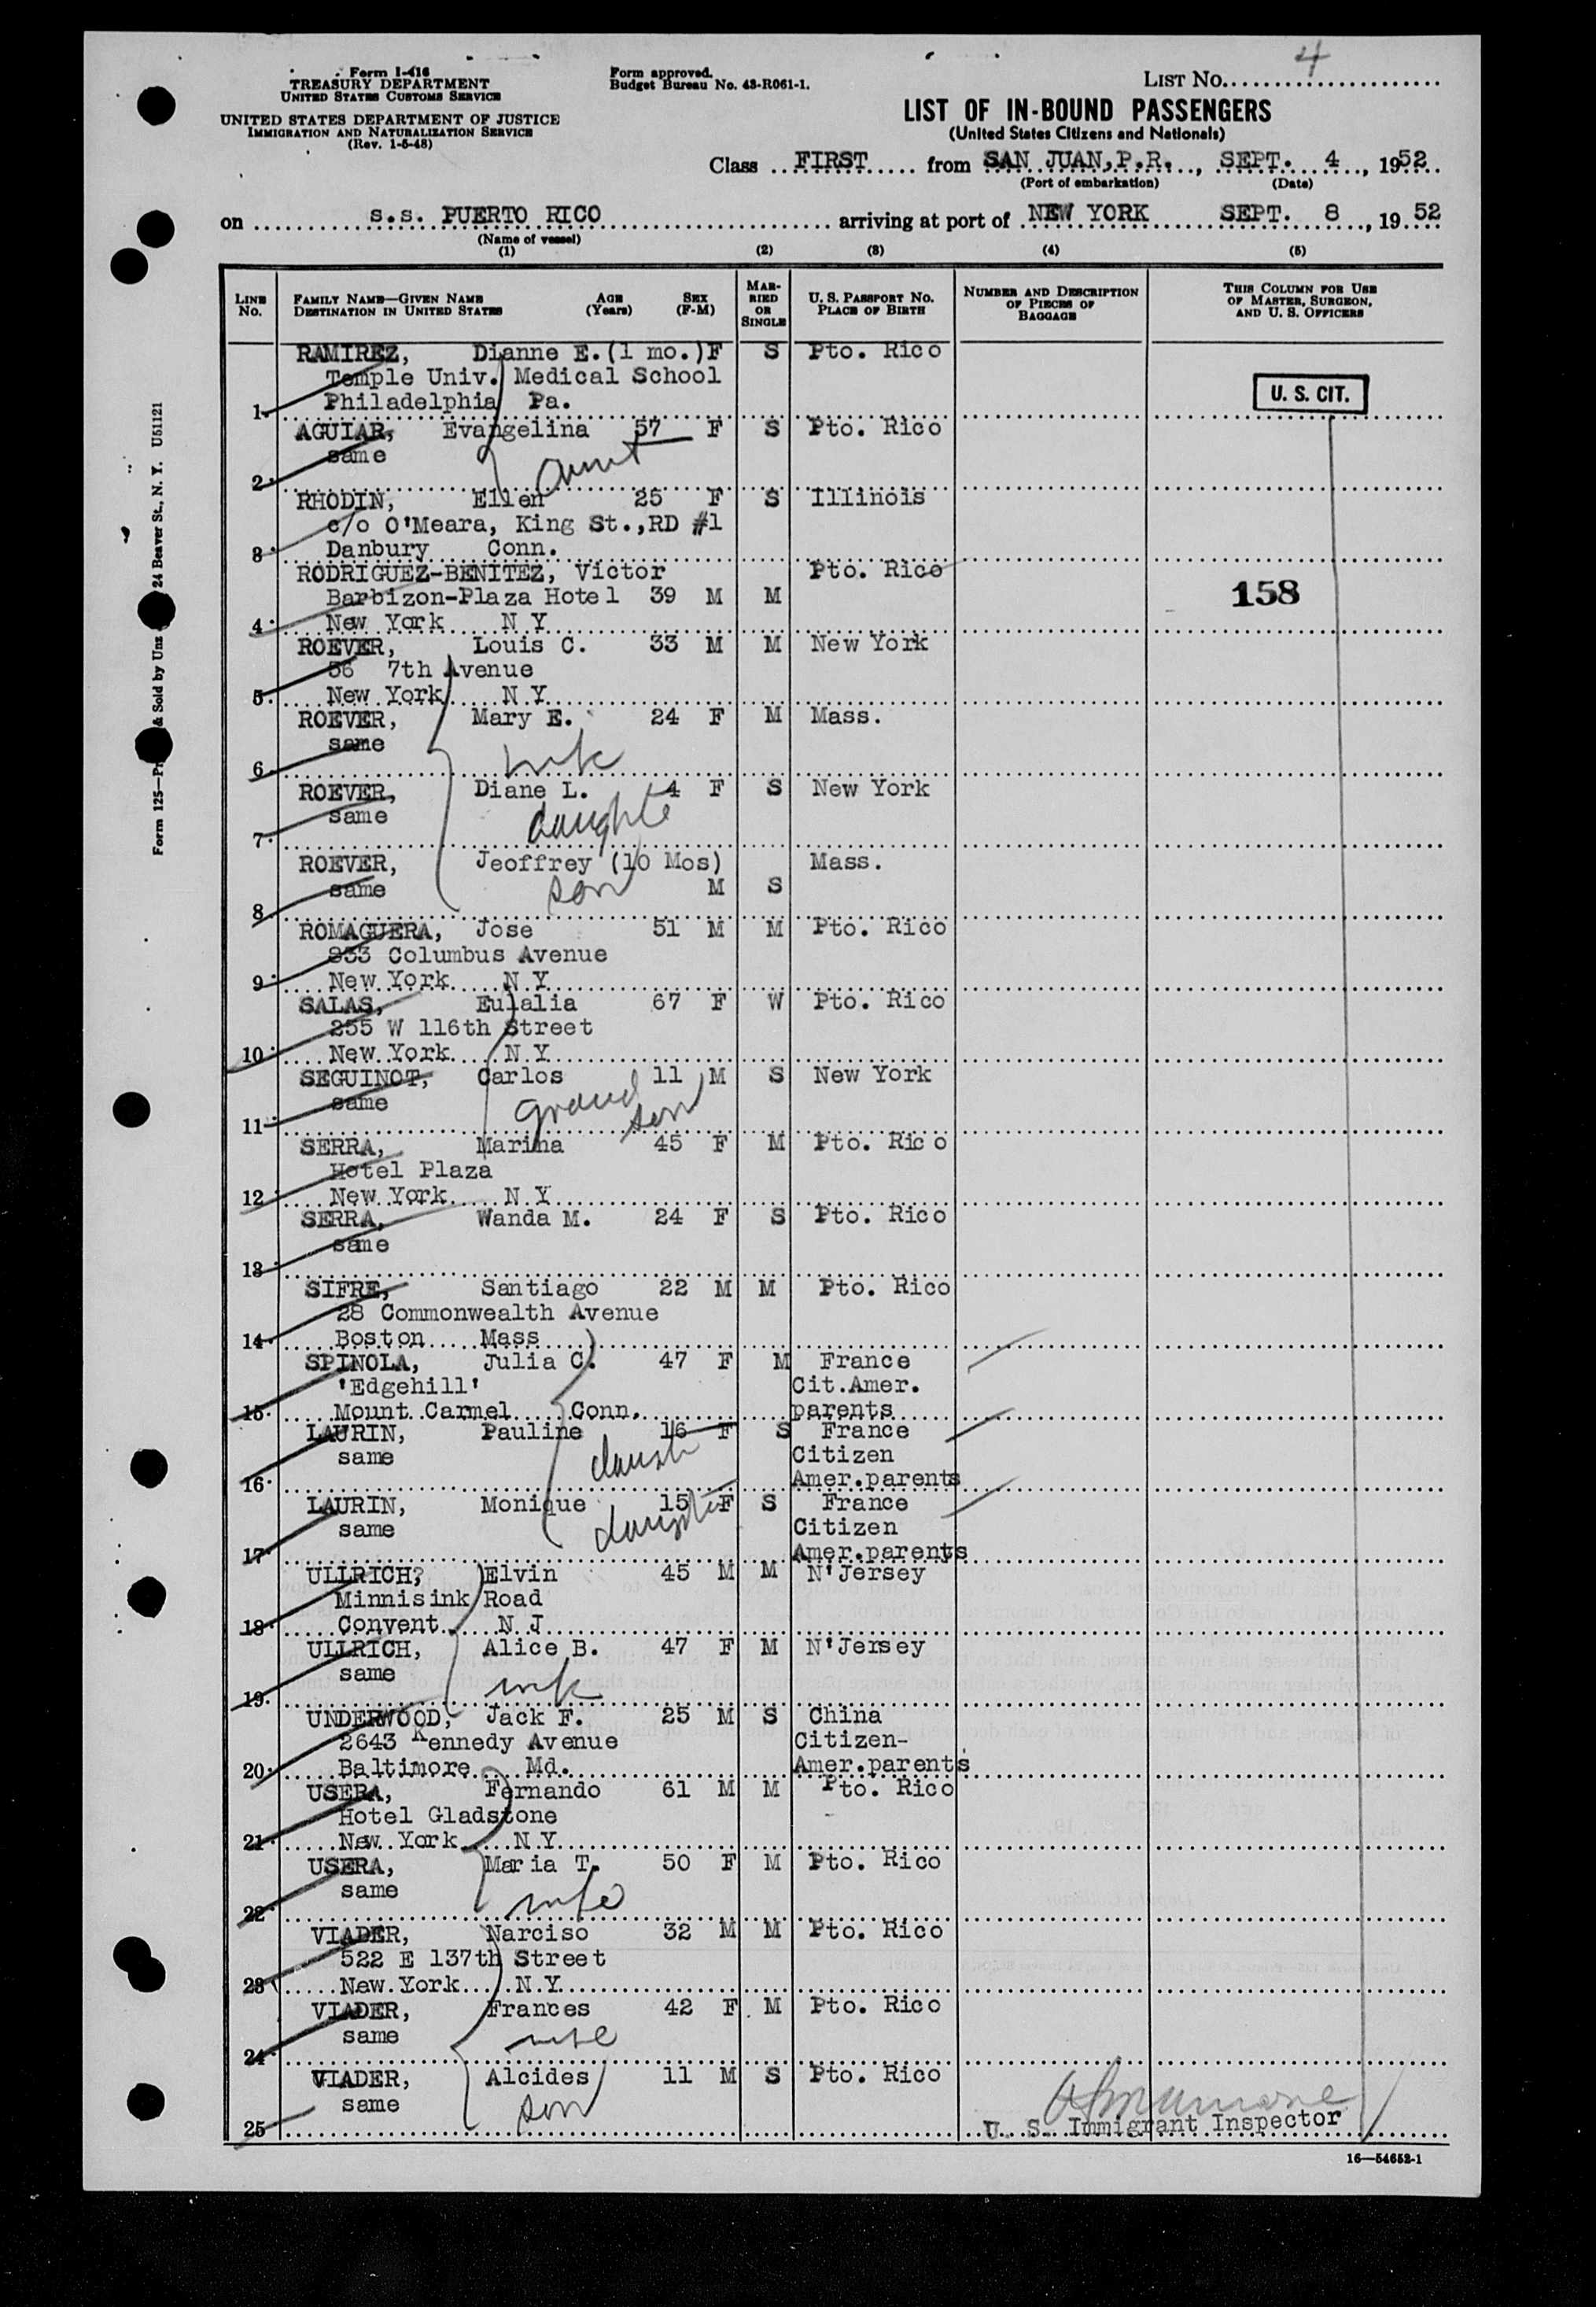 Form I-416
TREASURY DEPARTMENT
UNITED STATES CUSTOMS SERVICE
UNITED STATES DEPARTMENT OF JUSTICE
IMMIGRATION AND NATURALIZATION SERVICE
(Rev. 1-5-48)
Form approved.
Budget Bureau No. 43-R061-1.
LIST NO. 4
LIST OF IN-BOUND PASSENGERS
(United States Citizens and Nationals)
Class FIRST from SAN JUAN,P.R., SEPT. 4, 1952
(Port of embarkation) (Date)
on s.s. PUERTO RICO arriving at port of NEW YORK SEPT. 8, 1952
(Name of vessel)
(1) (2) (3) (4) (5)
LINE NO. FAMILY NAME—GIVEN NAME DESTINATION IN UNITED STATES AGE (Years) SEX (F-M) MARRIED OR SINGLE U. S. PASSPORT NO. PLACE OF BIRTH NUMBER AND DESCRIPTION OF PIECES OF BAGGAGE THIS COLUMN FOR USE OF MASTER, SURGEON, AND U. S. OFFICERS
RAMIREZ, Dianne E.(1 mo.)F S Pto. Rico
Temple Univ. Medical School
U. S. CIT.
1. Philadelphia Pa.
AGUIAR, Evangelina 57 F S Pto. Rico
same
2. aunt
RHODIN, Ellen 25 F S Illinois
c/o O'Meara, King St.,RD #1
3. Danbury Conn.
RODRIGUEZ-BENITEZ, Victor Pto. Rico
Barbizon-Plaza Hotel 39 M M
158
4. New York N Y
ROEVER, Louis C. 33 M M New York
56 7th Avenue
5. New York N Y
ROEVER, Mary E. 24 F M Mass.
same
6. wife
ROEVER, Diane L. 4 F S New York
same daughte
7.
ROEVER, Jeoffrey (10 Mos) Mass.
same son M S
8.
ROMAGUERA, Jose 51 M M Pto. Rico
933 Columbus Avenue
9. New York N Y
SALAS, Eulalia 67 F W Pto. Rico
255 W 116th Street
10. New York N Y
SEGUINOT, Carlos 11 M S New York
same grand son
11.
SERRA, Marina 45 F M Pto. Rico
Hotel Plaza
12. New York N Y
SERRA, Wanda M. 24 F S Pto. Rico
same
13.
SIFRE, Santiago 22 M M Pto. Rico
28 Commonwealth Avenue
14. Boston Mass
SPINOLA, Julia C. 47 F M France
'Edgehill' Cit.Amer.
15. Mount Carmel Conn. parents
LAURIN, Pauline 16 F S France
same Citizen
16. Amer.parents
LAURIN, Monique 15 F S France
same Citizen
17. Amer.parents
ULLRICH, Elvin 45 M M N'Jersey
Minnisink Road
18. Convent N J
ULLRICH, Alice B. 47 F M N'Jersey
same
19. wife
UNDERWOOD, Jack F. 25 M S China
2643 Kennedy Avenue Citizen-
20. Baltimore Md. Amer.parents
USERA, Fernando 61 M M Pto. Rico
Hotel Gladstone
21. New York N Y
USERA, Maria T. 50 F M Pto. Rico
same
22. wife
VIADER, Narciso 32 M M Pto. Rico
522 E 137th Street
23. New York N.Y.
VIADER, Frances 42 F M Pto. Rico
same wife
24.
VIADER, Alcides 11 M S Pto. Rico
same son
25. U. S. Immigrant Inspector
16—54652-1
24 Beaver St., N. Y. U51121
& Sold by
Form 125—